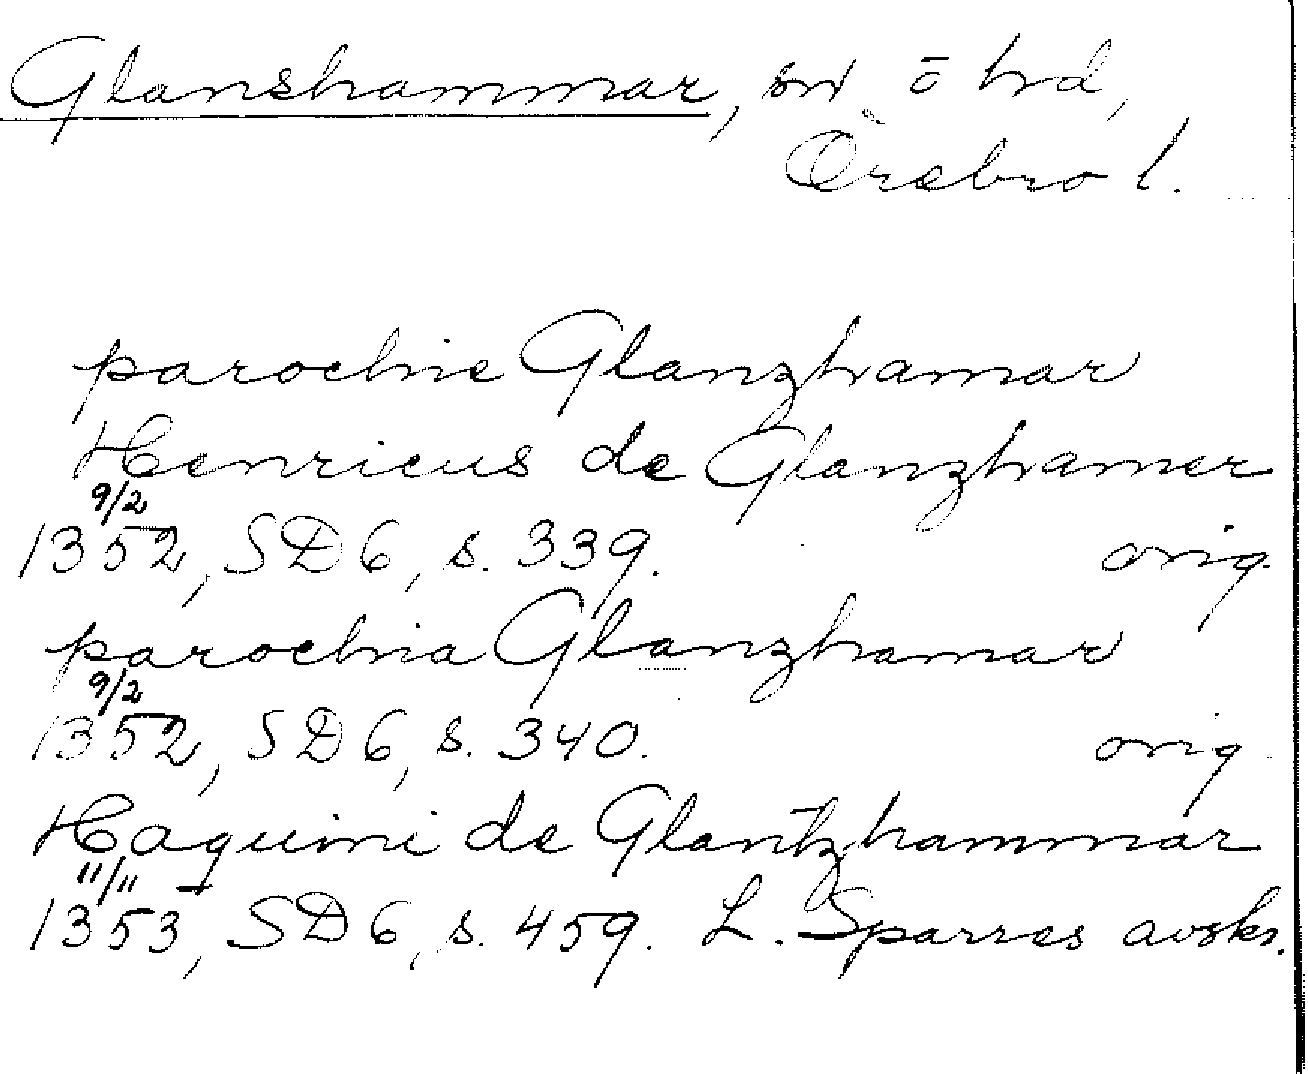 Glanshammar, sn o hd,
Örebro l.
parochie Glanzhamar
Henricus de Glanzhamer
9/2
1352, SD 6, s. 339. orig.
parochia Glanzhamar
9/2
1352, SD 6, s. 340. orig
Haquini de Glantzhammar
11/11
1353, SD 6, s. 459. L. Sparres avskr.